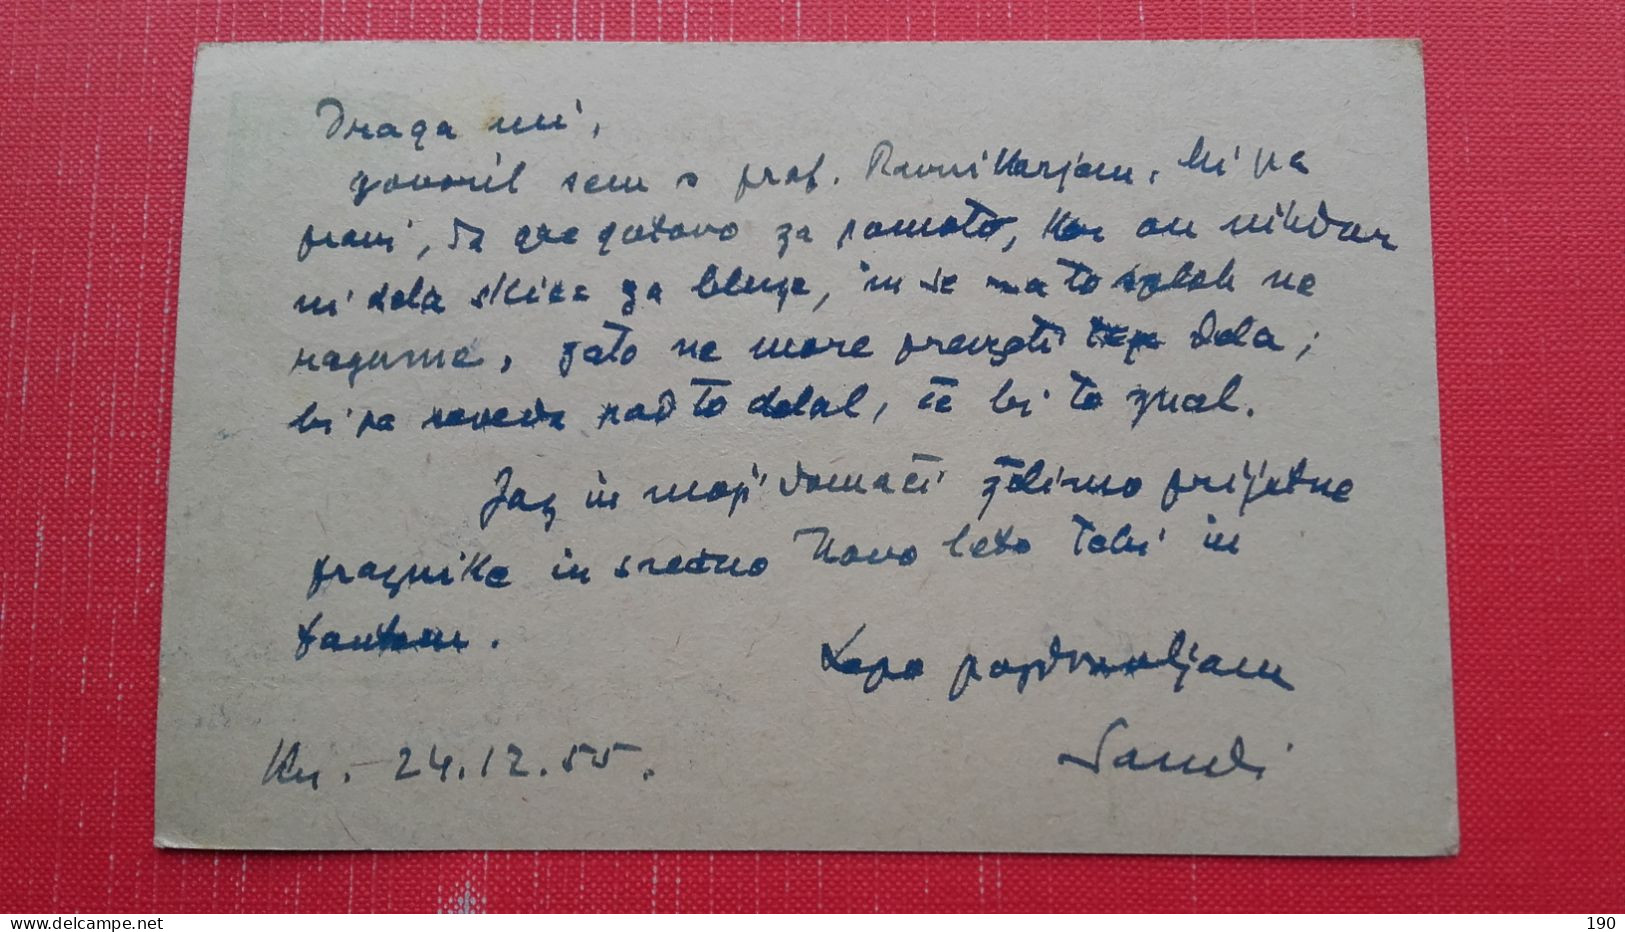 Draga mi,
govoril sem s prof. Ravnikarjem, ki pa
pravi, da gre gotovo za pomoto, ker on nikdar
ni dela skice za bluze, in se na to sploh ne
razume, zato ne more prevzeti tega dela;
bi pa seveda rad to delal, če bi to znal.
Jaz in moji domači želimo prijetne
praznike in srečno Novo leto Tebi in
fantom.
Lepo pozdravljam
Sandi
24.12.55.
delcampe.net
190